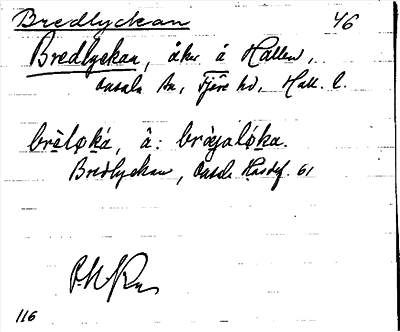 Bredlyckan
46
Bredlyckan, åker å Hallen,
Onsala sn, Fjäre hd, Hall. l.
brèløká, ä: bràjaløka.
Bredlyckan, Onsala 61
116